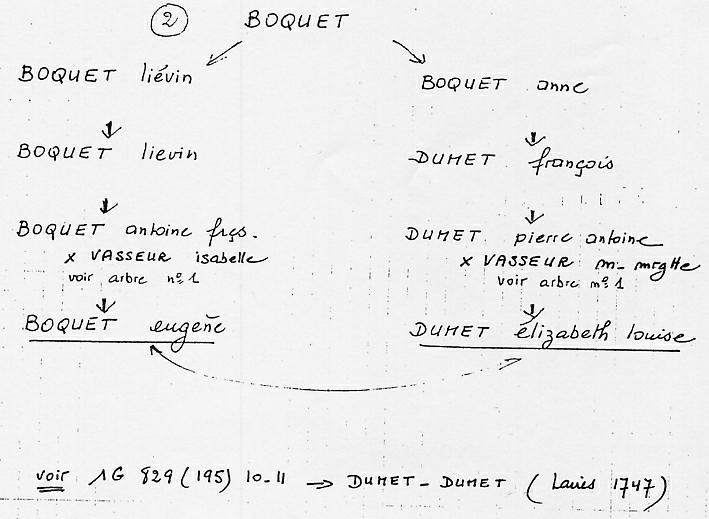 2 BOQUET
BOQUET liévin BOQUET anne
BOQUET lievin DUMET françois
BOQUET antoine frçs. DUMET pierre antoine
x VASSEUR isabelle x VASSEUR m- mrgtte
voir arbre nº 1 voir arbre nº 1
BOQUET eugene DUMET élizabeth louise
voir 1G 829 (195) 10-11 → DUMET - DUMET ( 1747)